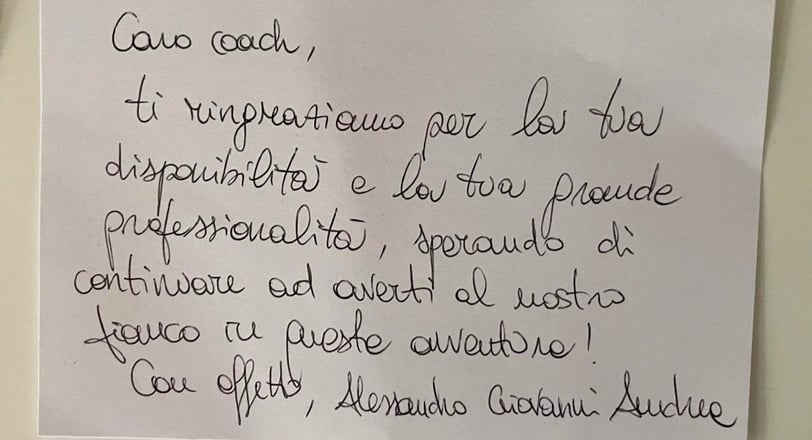 Caro coach,
ti ringraziamo per la tua
disponibilità e la tua grande
professionalità, sperando di
continuare ad averti al nostro
fianco in queste avventure!
Con affetto, Alessandro Giovanni Andrea